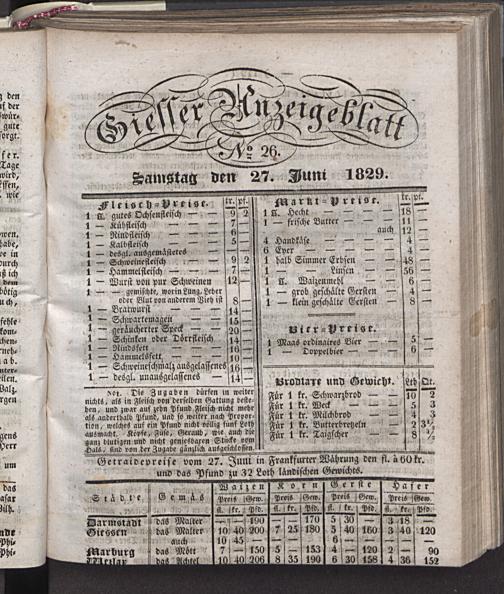 Giesser Anzeigeblatt
No 26.
Samstag den 27. Juni 1829.
Fleisch-Preise. kr. pf.
1 ℔. gutes Ochsenfleisch — 9 2
1 — Kuhfleisch — 7
1 — Rindfleisch — 6
1 — Kalbfleisch — 5
1 — desgl. ausgemästetes —
1 — Schweinefleisch — 9 2
1 — Hammelfleisch — 7
1 — Wurst von pur Schweinen 12
1 — gemischte, worin Lung, Leber
oder Blut von anderem Vieh ist 8
1 — Bratwurst — 14
1 — Schwartemagen — 15
1 — geräucherter Speck — 20
1 — Schinken oder Dörrfleisch 14
1 — Rindsfett — 16
1 — Hammelsfett — 10
1 — Schweineschmalz ausgelassenes 16
1 — desgl. unausgelassenes — 14
Not. Die Zugaben dürfen in weiter
nichts, als in Fleisch von derselben Gattung beste-
hen, und zwar auf zehn Pfund Fleisch nicht mehr
als anderthalb Pfund, und so weiter nach Propor-
tion, welches auf ein Pfund nicht völlig fünf Loth
ausmacht. Köpfe, Füße, Geraub, wie auch die
ganz blutigen und nicht genießbaren Stücke vom
Hals, sind von der Zugabe gänzlich ausgeschlossen.
Markt-Preise. kr. pf.
1 ℔. Hecht — 18 —
1 — frische Butter — 11
auch 12
4 Handkäse — 4
6 Eyer — 4
1 halb Simmer Erbsen — 48
1 — Linsen — 56
1 ℔. Waizenmehl — 6
1 — grob geschälte Gersten — 4
1 — klein geschälte Gersten — 8
Bier-Preise.
1 Maas ordinaires Bier — 5
1 Doppelbier — 6
Brodtaxe und Gewicht. Lth Qt.
Für 1 kr. Schwarzbrod — 10 2
Für 1 kr. Weck — 5 3
Für 1 kr. Milchbrod — 4 3
Für 1 kr. Butterbrezeln — 2
Für 1 kr. Taigscher — 8
Getraidepreise vom 27. Juni in Frankfurter Währung den fl. à 60 kr.
und das Pfund zu 32 Loth ländischen Gewichts.
Städte. Gemäs Waizen Korn Gerste Hafer
Preis Gew. Preis Gew. Preis Gew. Preis Gew.
fl. kr. Pfd. fl. kr. Pfd. fl. kr. Pfd. fl. kr. Pfd.
Darmstadt das Malter — — 190 — — 170 5 30 — 3 18 —
Giessen das Malter 10 40 200 7 25 180 5 40 160 3 40 120
auch 10 45 — — — — 6 — — — — —
Marburg das Mött 7 — 150 5 — 153 4 — 120 2 — 90
Wezlar das Achtel 10 40 206 8 35 190 6 30 158 4 36 152